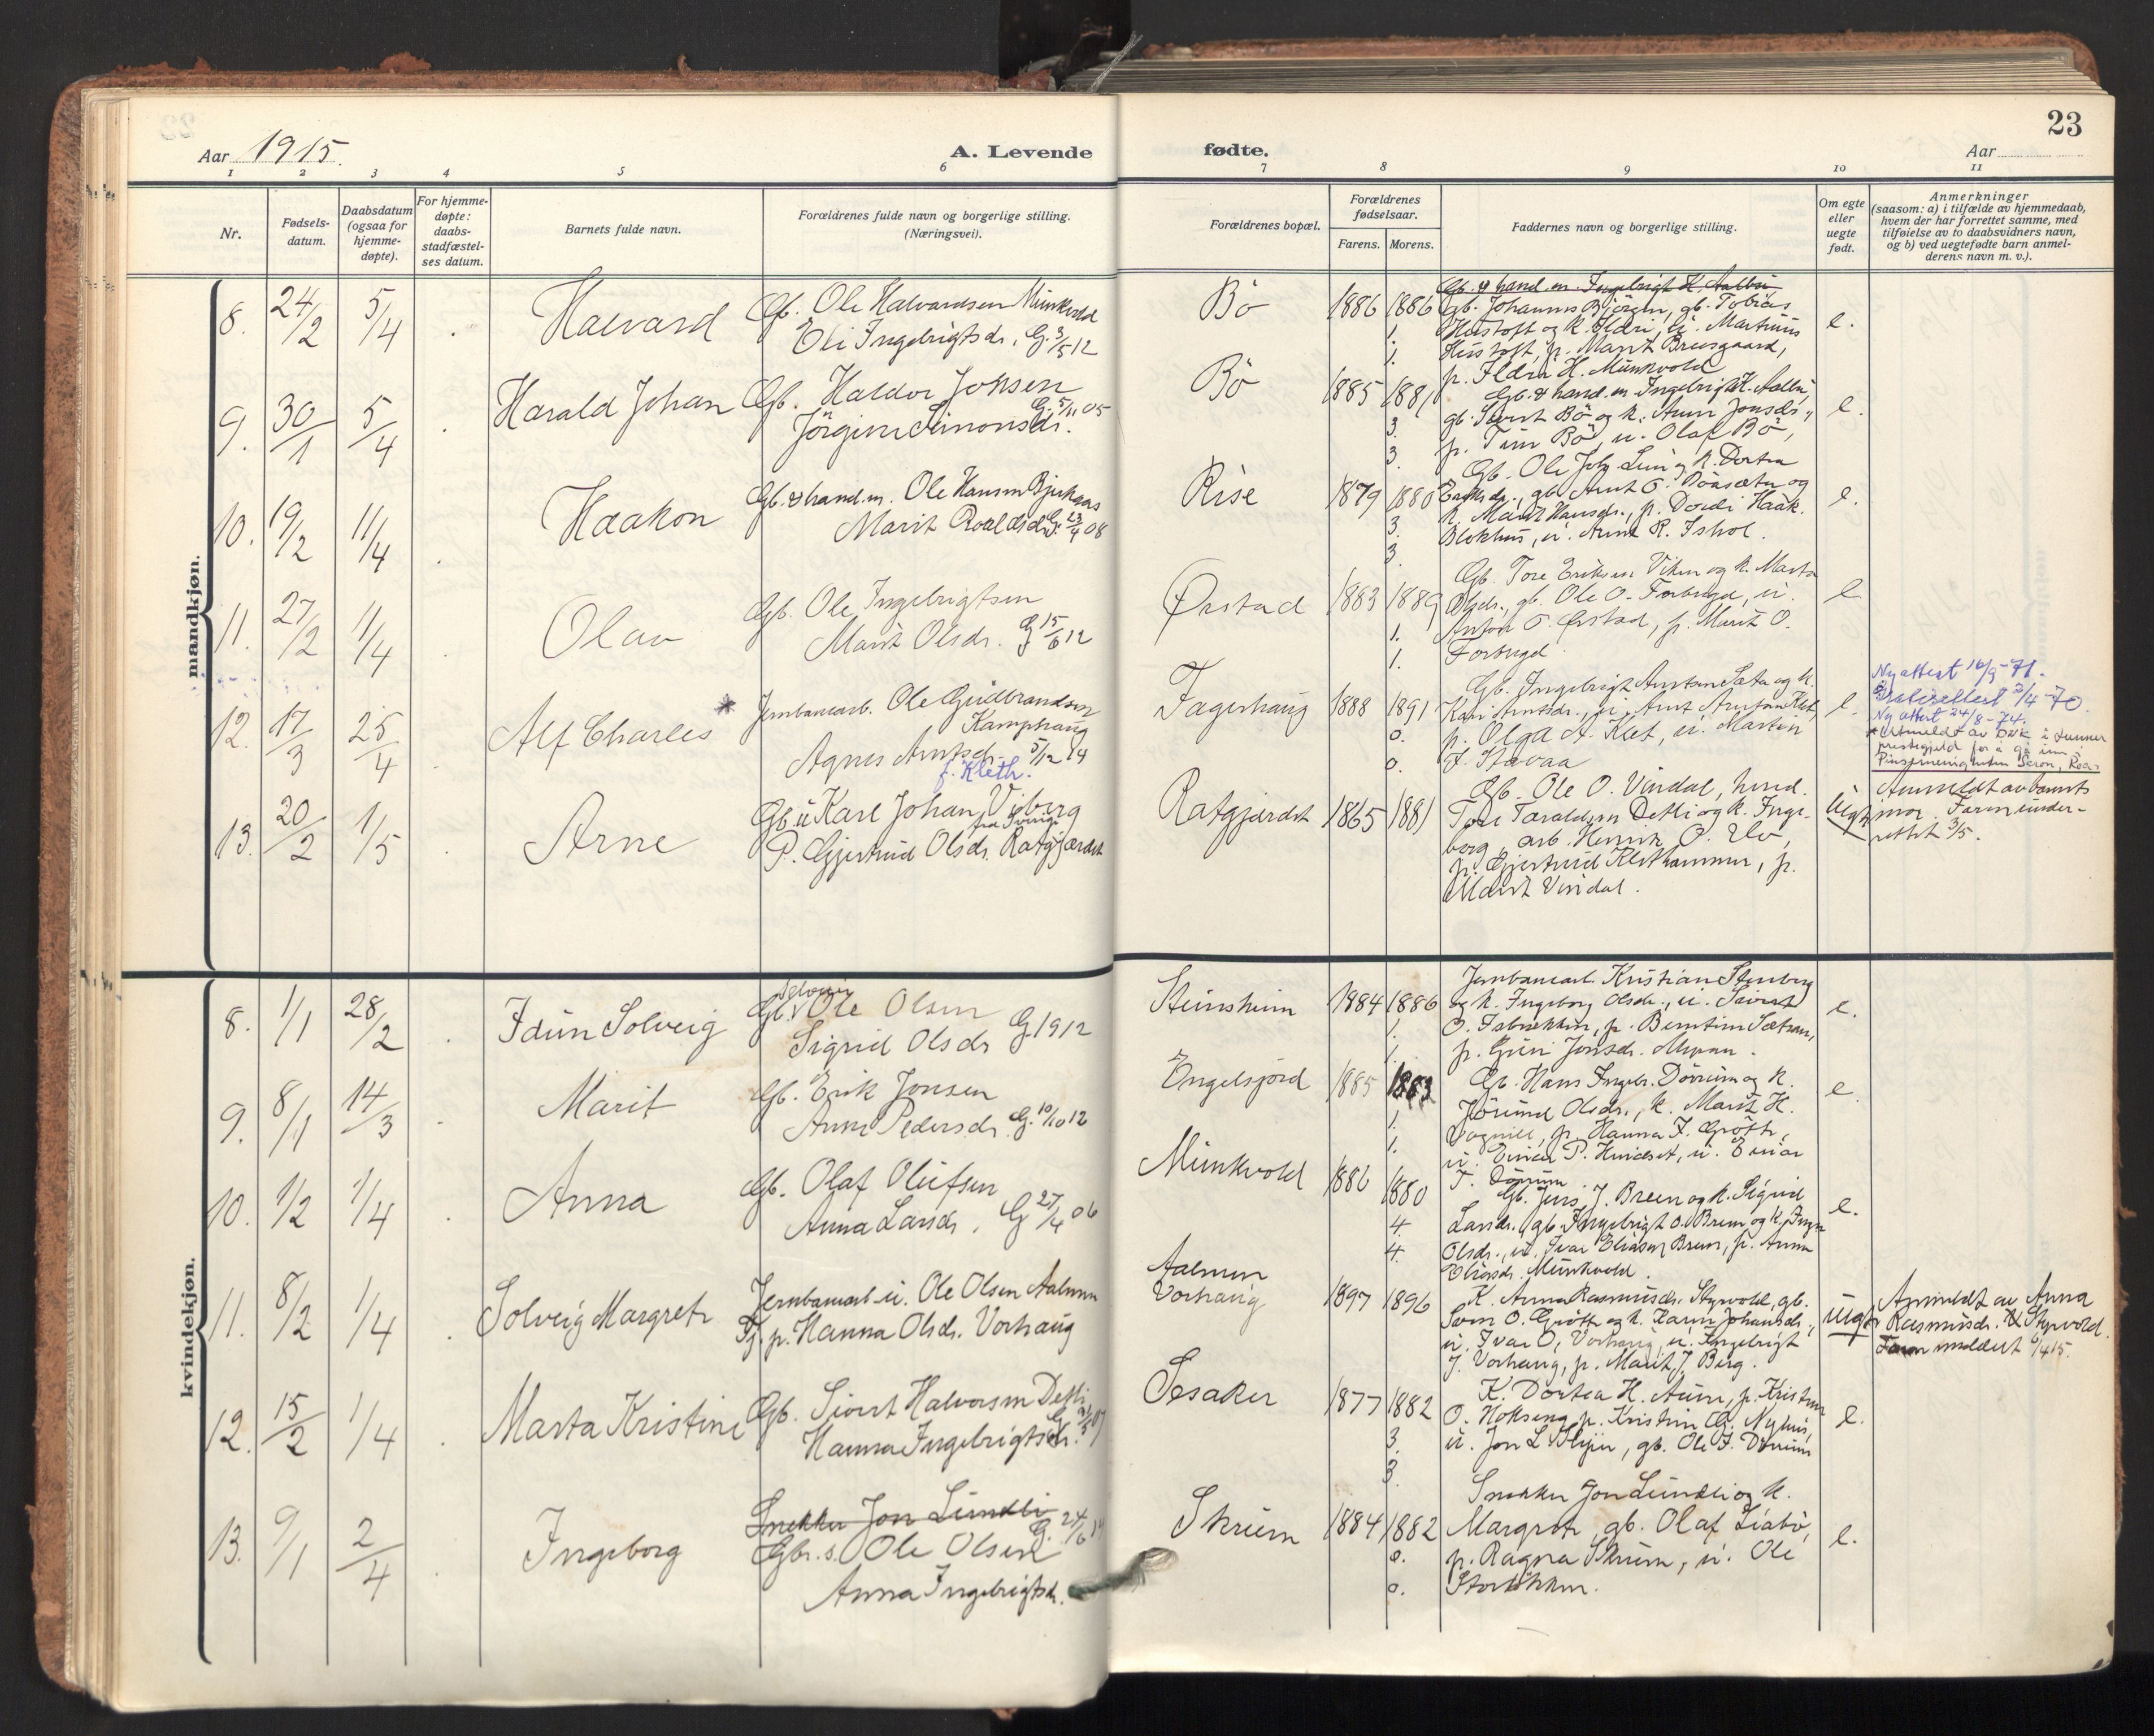 23
Aar 1915.
A. Levende
fødte.
Aar
1 2 3 4 5 6 7 8 9 10 11
Nr.
Fødsels-
datum.
Daabsdatum
(ogsaa for
hjemme-
døpte).
For hjemme-
døpte:
daabs-
stadfæstel-
ses datum.
Barnets fulde navn.
Forældrenes fulde navn og borgerlige stilling.
(Næringsvei).
Forældrenes bopæl.
Forældrenes
fødselsaar.
Farens. Morens.
Faddernes navn og borgerlige stilling.
Om egte
eller
uegte
født.
Anmerkninger
(saasom: a) i tilfælde av hjemmedaab,
hvem der har forrettet samme, med
tilføielse av to daabsvidners navn,
og b) ved uegtefødte barn anmel-
derens navn m. v.).
mandkjøn.
8. 24/2 5/4 Halvard
Gb. Ole Halvardsen Munkvold
Eli Ingebrigtsdr. G. 3/5 12
Bö 1886 1886 1. 1.
Gb. & hand.m. Ingebrigt H. Aalbu
gb. Johannes Bjørgen, gb. Tobias
Hustoft og k. Ildri, u. Martinus
Hustoft, p. Marit Breesgaard,
p. Ildri H. Munkvold
e.
9. 30/1 5/4 Harald Johan
Gb. Haldor Jonsen
Jörgine Simonsdr. G. 5/11 05
Bö 1885 1881 3. 3.
Gb. & hand.m. Ingebrigt H. Aalbu,
gb. Sivert Bö og k. Anne Jonsdr.,
p. Bö, u. Olaf Bö,
e.
10. 19/2 11/4 Haakon
Gb. & hand.m. Ole Hansen Bjerkaas
Marit Roaldsdr. G. 23/4 08
Rise 1879 1880 3. 3.
Gb. Ole Joh. Lien og k. Dortea
gb. Arnt O. Böasæter og
k. Marit Hansdr., p. Dordi Haak.
Blokhus, u. Arne R. Ishol.
e.
11. 27/2 11/4 Olav
Gb. Ole Ingebrigtsen
Marit Olsdr. G 15/6 12
Ørstad 1883 1889 1. 1.
Gb. Tore Eriksen Viken og k. Marta
Olsdr., gb. Ole O. Forbregd, u.
Anton O. Ørstad, p. Marit O.
Forbregd
e
12. 17/3 25/4 Alf Charles
Jernbanearb. Ole Gudbrandsen
Kamphaug
Agnes Arntsdr. 5/12 14
f. Kleth.
Fagerhaug 1888 1891 0. 0.
Gb. Ingebrigt Arntsen Sæter og k.
Kari Arntsdr., u. Arnt Arntsen Klet,
p. Olga A. Klet, u. Martin
J. Stavaa
e.
Ny attest 16/9-71.
2/4-70
Ny attest 24/8-74.
* Utmeldt av DNK i Lunner
prestegjeld for å gå inn i
Pinsemenigheten Saron, Roa.
13. 20/2 1/5 Arne
Gb. u Karl Johan Viberg
fra Sverige
P. Gjertrud Olsdr. Ratgjærdet
Ratgjerdet 1865 1881
Gb. Ole O. Vindal, hand.
Tore Taraldsen Detli og k. Inge-
borg, arb. Henrik O. Vo,
p. Gjertrud Klethammer, p.
Marit Vindal.
Uegte
Anmeldt av barnets
mor. Faren under-
rettet 3/5.
kvindekjøn.
8. 1/1 28/2 Idun Solveig
Selveier
Gb. Ole Olsen
Sigrid Olsdr G. 1912
Steinsheim 1884 1886 1. 1.
Jernbanearb. Kristian Stenberg
og k. Ingeborg Olsdr., u. Sivert
O. Isbrekken, p. Berntine Sætran,
p. Guri Jonsdr. Moen.
e.
9. 8/1 14/3 Marit
Gb. Erik Jonsen
Anne Pedersdr. G. 10/10 12
Engelsjord 1885 1883 1. 1.
Gb. Hans Ingebr. Dörrum og k.
Jörund Olsdr., k. Marit H.
Vognill, p. Hanna J. Grötte,
u. Einar P. Hindset, u. Einar
T. Dörrum.
e.
10. 1/2 1/4 Anna
Gb. Olaf Olufsen
Anna Larsdr. G 27/4 06
Munkvold 1886 1880 4. 4.
Gb. Jens J. Breen og k. Sigrid
Larsdr., gb. Ingebrigt O. Breen og k. Inger
Olsdr., u. Ivar Eliasen Breen, p. Anne
Eliasdr. Munkvold.
e.
11. 8/2 1/4 Solveig Margrete
Jernbanearb. u. Ole Olsen Aalmen
Tj. p. Hanna Olsdr. Vorhaug
Aalmen
Vorhaug 1897 1896
K. Anna Rasmusdr. Styrvold, gb.
Sven O. Grötte og k. Karen Johansdr.,
u. Ivar O. Vorhaug, u. Ingebrigt
J. Vorhaug, p. Marit J. Berg.
uegte
Anmeldt av Anna
Rasmusdr. Styrvold.
Faren meldert 6/4 15.
12. 15/2 1/4 Marta Kristine
Gb. Sivert Halvorsen Detli
Hanna Ingebrigtsdr.
Sesaker 1877 1882 3. 3.
K. Dortea H. Aune, p. Kristine
O. Hokseng, p. Kristine G. Nyhus,
u. Jon L. Skjei, gb. Ole J. Dörrum
e.
13. 9/1 2/4 Ingeborg
Snekker Jon Lundli
Gbr.s. Ole Olsen G. 24/6 14
Anna Ingebrigtsdr.
Skrum 1884 1882 0. 0.
Snekker Jon Lundli og k.
Margrete, gb. Olaf Liabö,
p. Ragna Skrum, u. Ole
Storbekken.
e.